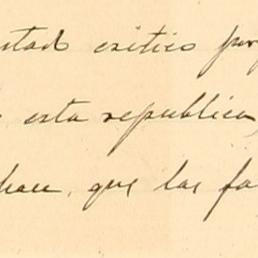 estado critico por
esta republica,
hace, que las fa